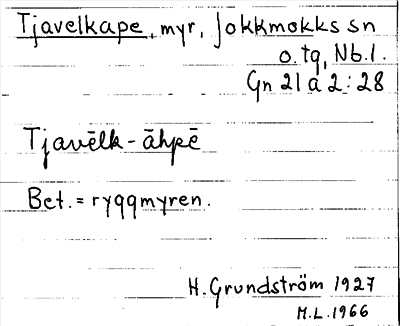 Tjavelkape, myr, Jokkmokks sn
o. tg, Nb. l.
Gn 21 a 2:28
Tjavēlk-āhpē
Bet. = ryggmyren.
H. Grundström 1927
M.L. 1966